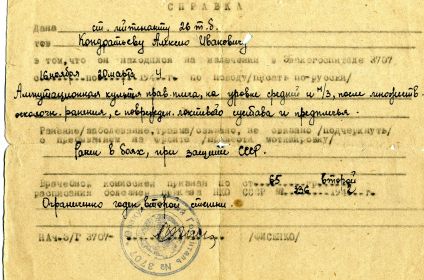 СПРАВКА
Дана ст. лейтенанту 26 т.б.
тов Кондратьеву Алексею Ивановичу
в том, что он находился на излечении в эвакогоспитале 3707
16 ноября 20 марта 4 194 г. по поводу /писать по-русски/
Ампутационная культя прав. плеча, на уровне средней и н/3, после множеств.
осколочн. ранения, с поврежден. локтевого сустава и предплечья.
Ранение/заболевание, травма/связано, не связано /подчеркнуть/
с пребыванием на фронте /внести мотивировку/
Ранен в боях, при защите СССР.
Врачебно, комиссией признан по ст. 65 второй
расписания болезней приказа НКО СССР № 336 194 2 г.
Ограниченно годен, второй степени.
НАЧ. Э/Г 3707- /ФИСЕНКО/